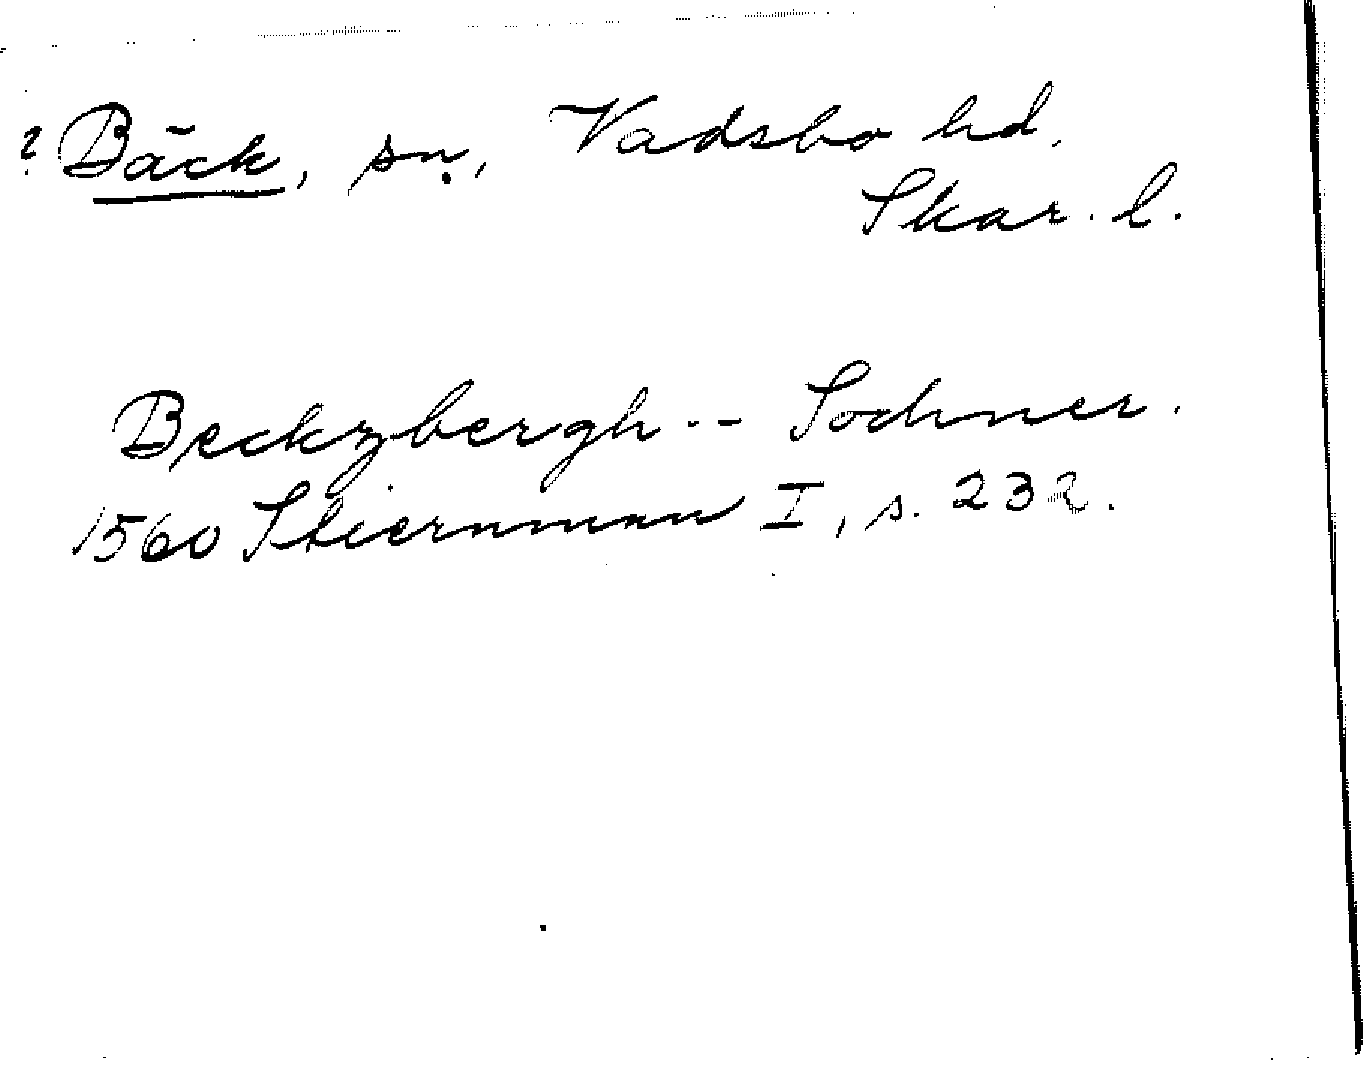 ? Bäck, sn., Vadsbo hd.
Skar. l.
Beckzbergh -- Sochner.
1560 Stiernman I, s. 232.